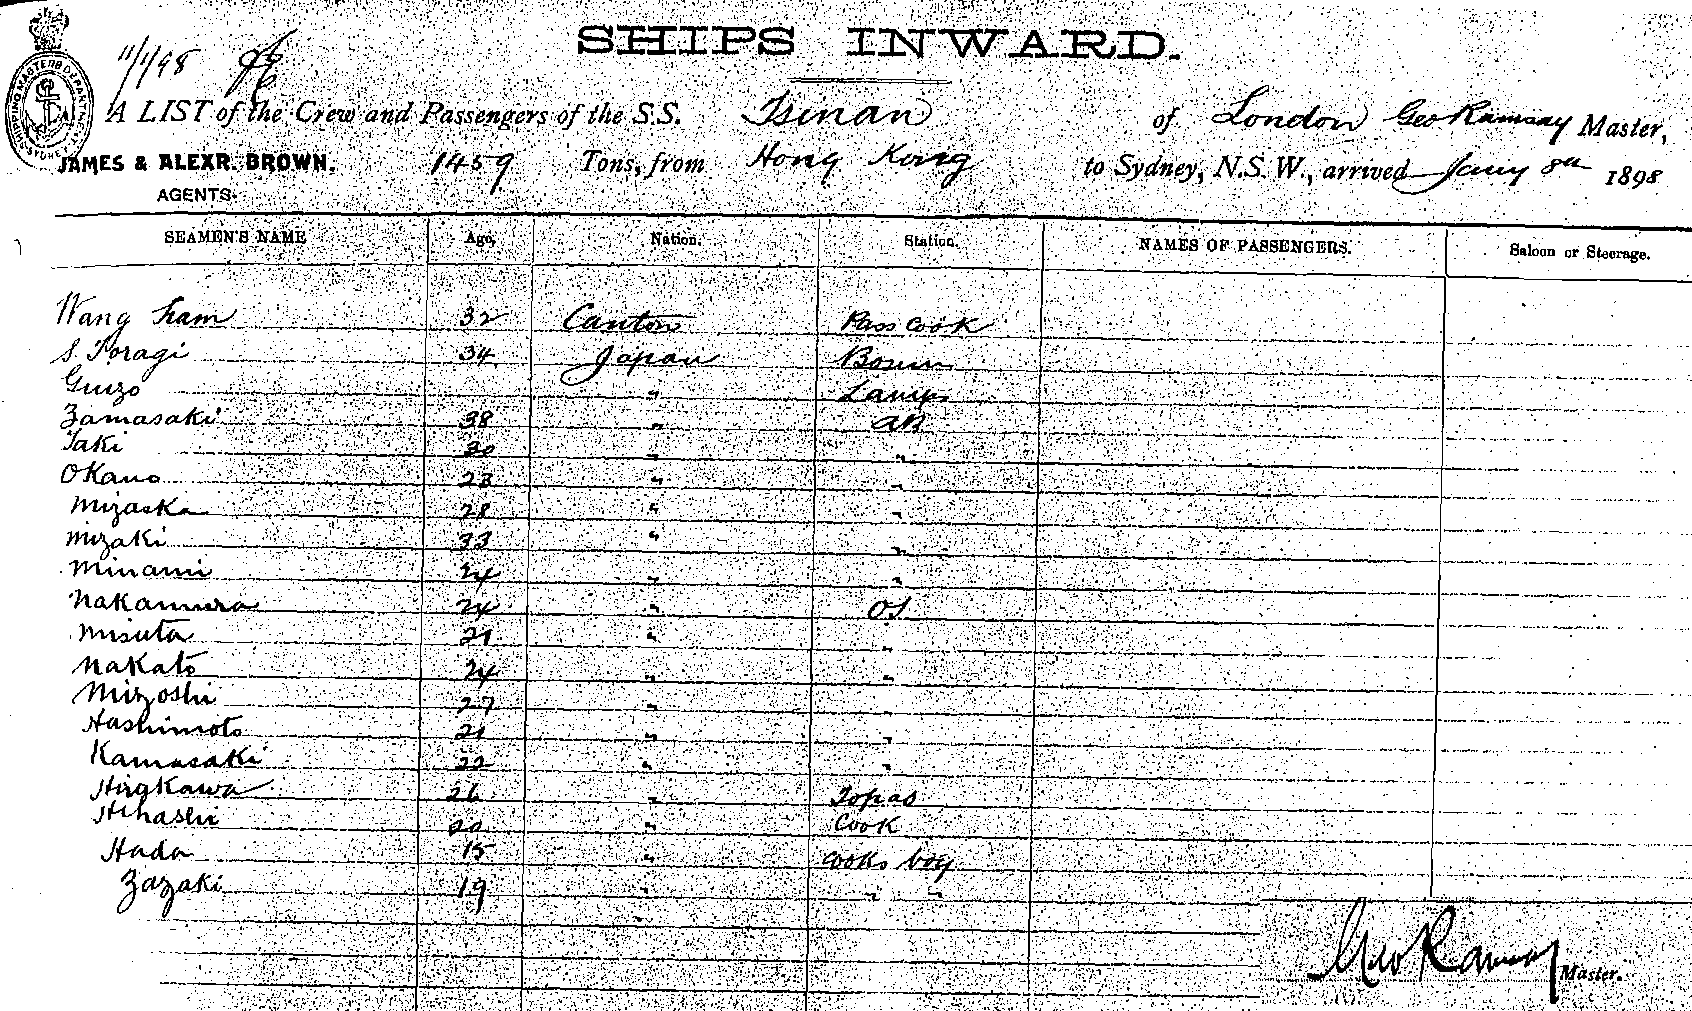 SHIPS INWARD.
11/1/98
A LIST of the Crew and Passengers of the S.S. Tsinan of London Geo Ramsay Master,
JAMES & ALEXR. BROWN. 1459 Tons, from Hong Kong to Sydney, N.S.W., arrived Jany 8th 1898
AGENTS.
SEAMEN'S NAME Age, Nation. Station. NAMES OF PASSENGERS. Saloon or Steerage.
Wang Ham 32 Canton Pass Cook
S. Toragi 34 Japan Bosun
Guizo " Lamps
Zamasaki 38 " AB
Taki 30 " "
Okano 23 " "
Mizaska 28 " "
Mizaki 33 " "
Minami 24 " "
Nakamura 24 " OS
Misuta 21 " "
Nakato 24 " "
Mizoshi 27 " "
Hashimoto 21 " "
Kamasaki 22 " "
Hirgkawa 26 " Topas
Hihashi 20 " Cook
Hada 15 " Cooks boy
Zazaki 19 " " "
Geo Ramsay Master.